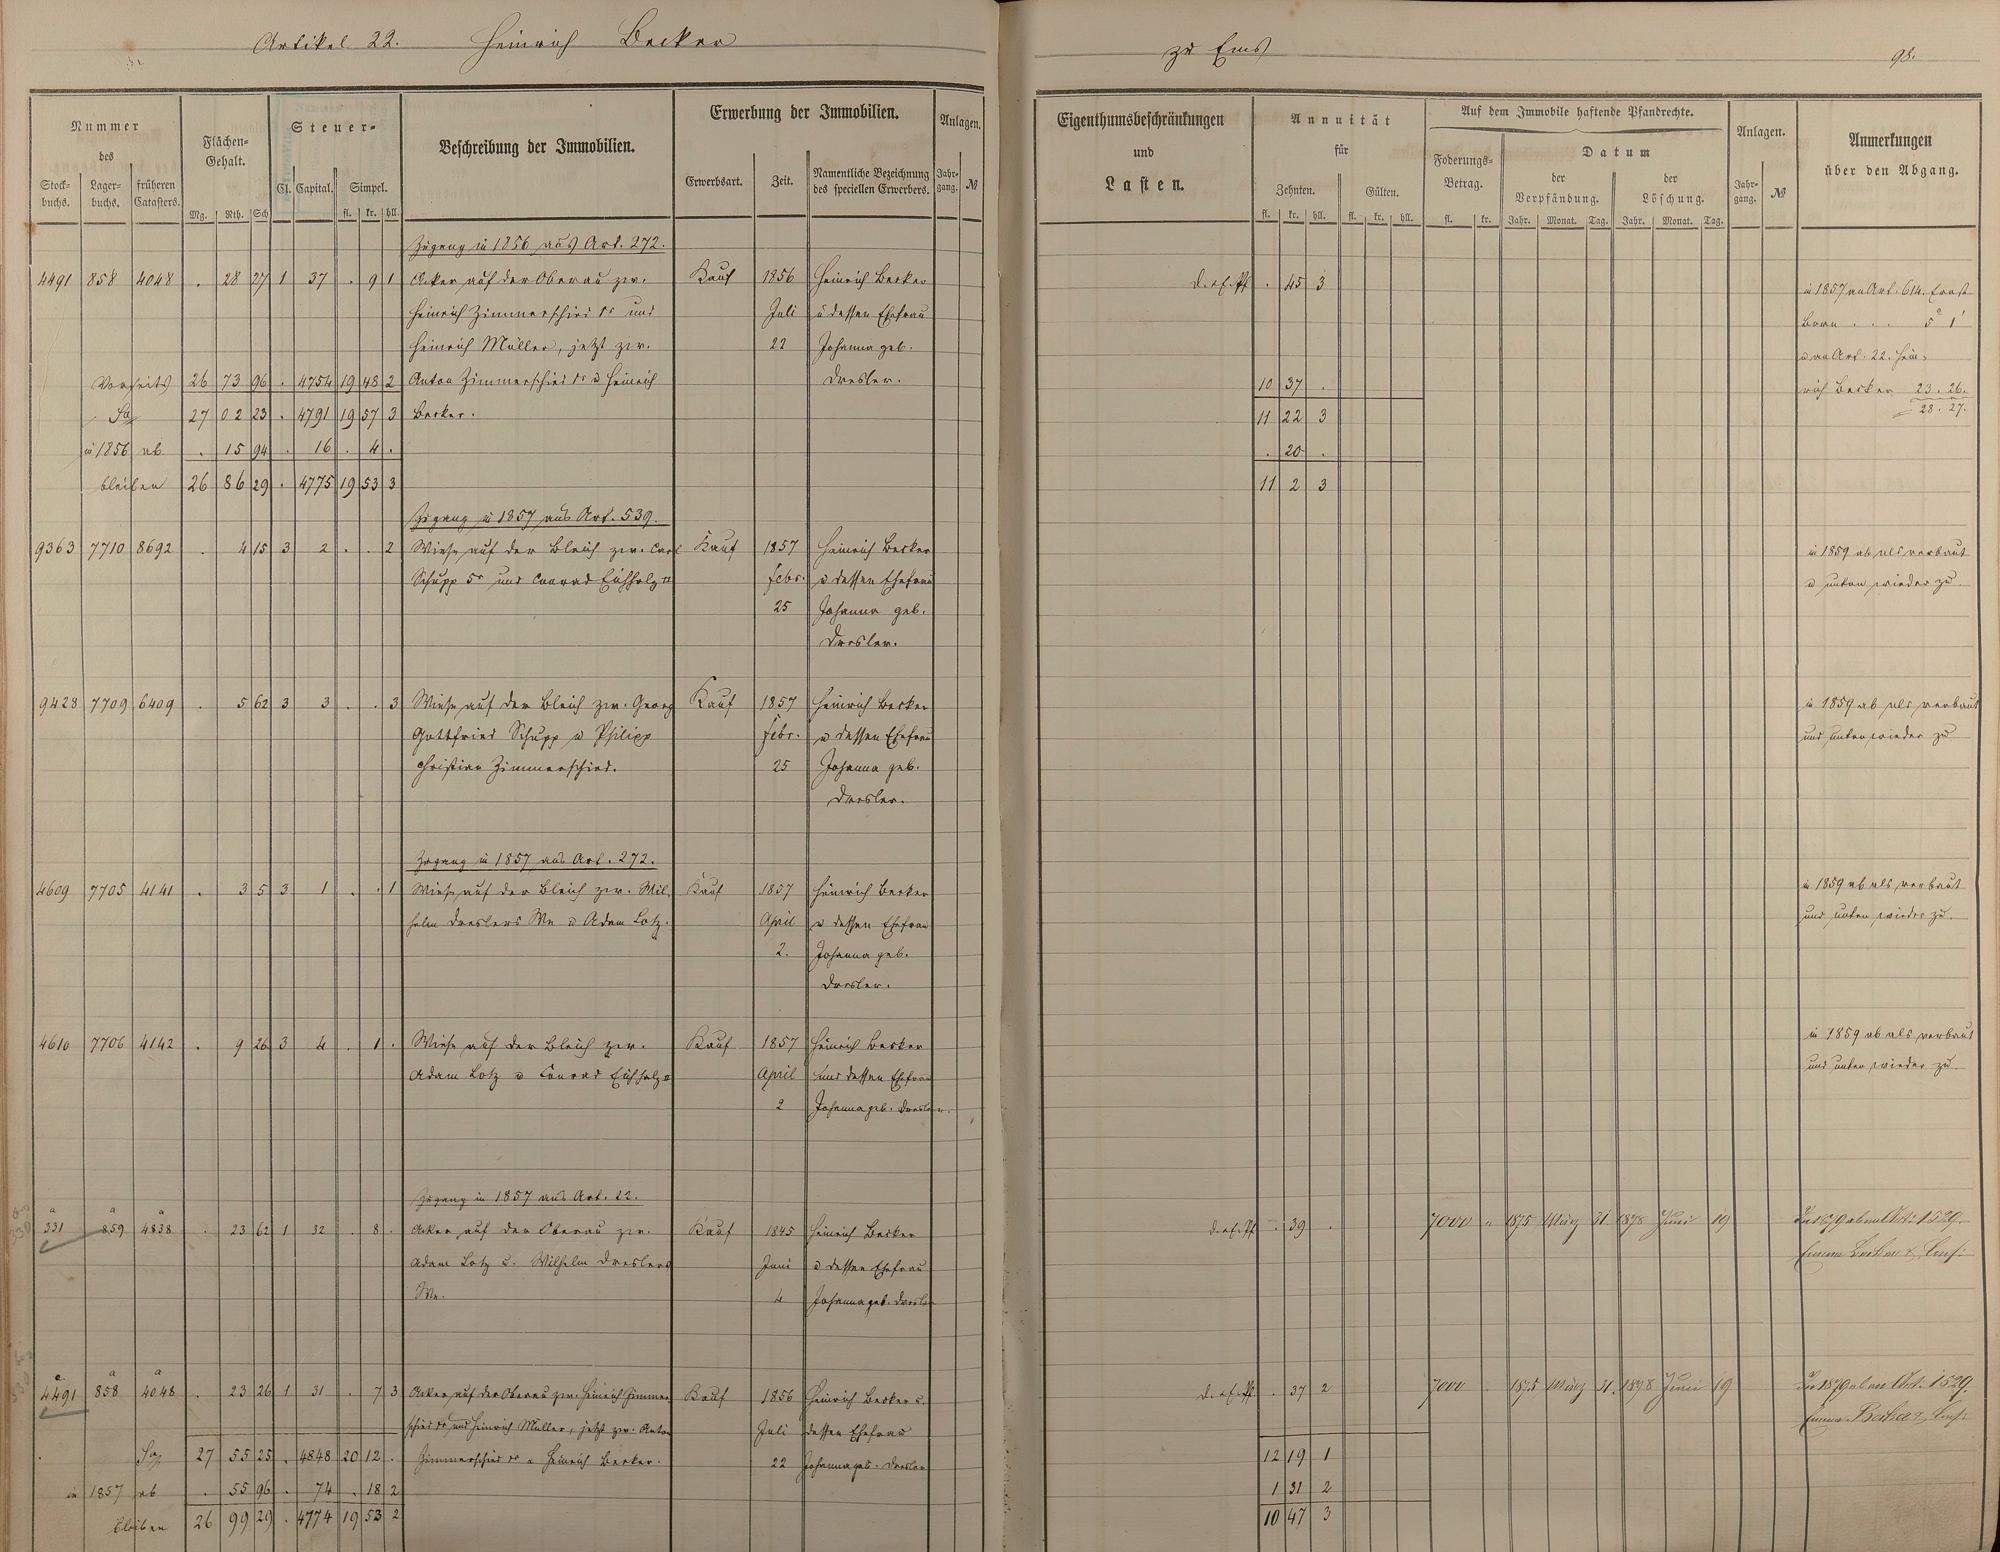 Artikel 22. Heinrich Becker
zu Ems
98.
Nummer des
Stockbuchs. Lagerbuchs. früheren Catasters.
Flächen-Gehalt.
Mg. Rth. Sch
Steuer-
Cl. Capital. Simpel.
fl. kr. hll.
Beschreibung der Immobilien.
Erwerbung der Immobilien.
Erwerbsart. Zeit. Namentliche Bezeichnung des speciellen Erwerbers.
Anlagen.
Jahrgang. №
Eigenthumsbeschränkungen
und
Lasten.
Annuität
für
Zehnten. Gülten.
fl. kr. hll. fl. kr. hll.
Auf dem Immobile haftende Pfandrechte.
Foderungs-Betrag.
fl. kr.
Datum
der Verpfändung. der Löschung.
Jahr. Monat. Tag. Jahr. Monat. Tag.
Anlagen.
Jahrgang. №
Anmerkungen
über den Abgang.
Zugang in 1856 aus Art. 272.
4491 858 4048 . 28 27 1 37 . 9 1 Acker auf der Oberau zw. Kauf 1856 Heinrich Becker . 45 3 in 1857 an Art. 614. Ernst
Heinrich Zimmerschied und Juli u dessen Ehefrau Born . . . 5 1
Heinrich Müller, jetzt zw. 22 Johanna geb. u an Art. 22. Hein-
Vorseits 26 73 96 . 4754 19 48 2 Anton Zimmerschied u Heinrich Dresler. 10 37 . rich Becker 23. 26.
Sa 27 02 23 . 4791 19 57 3 Becker. 11 22 3 28. 27.
in 1856 ab . 15 94 . 16 . 4 . . 20 .
bleiben 26 86 29 . 4775 19 53 3 11 2 3
Zugang in 1857 aus Art. 539.
9363 7710 8692 . 4 15 3 2 . . 2 Wiese auf der Bleich zw. Carl Kauf 1857 Heinrich Becker in 1859 ab als verbaut
Schupp 5r und Conrad Eichholz Febr. u dessen Ehefrau u unten wieder zu
25 Johanna geb.
Dresler.
9428 7709 6409 . 5 62 3 3 . . 3 Wiese auf der Bleich zw. Georg Kauf 1857 Heinrich Becker in 1859 ab als verbaut
Gottfried Schupp u Philipp Febr. u dessen Ehefrau und unten wieder zu
Christian Zimmerschied. 25 Johanna geb.
Dresler.
Zugang in 1857 aus Art. 272.
4609 7705 4141 . 3 5 3 1 . . 1 Wiese auf der Bleich zw. Wil- Kauf 1857 Heinrich Becker in 1859 ab als verbaut
helm Dreslers We u Adam Lotz. April u dessen Ehefrau und unten wieder zu.
2. Johanna geb.
Dresler.
4610 7706 4142 . 9 26 3 4 . 1 . Wiese auf der Bleich zw. Kauf 1857 Heinrich Becker in 1859 ab als verbaut
Adam Lotz u Conrad Eichholz April und dessen Ehefrau und unten wieder zu
2 Johanna geb. Dresler.
Zugang in 1857 aus Art. 22.
a a a
331 859 4838 . 23 62 1 32 . 8 . Acker auf der Oberau zw. Kauf 1845 Heinrich Becker . 39 . 7000 1875 März 31 1878 Juni 19 In 1879 ab an Art: 1529.
Adam Lotz u. Wilhelm Dreslers Juni u dessen Ehefrau Emma Becker
We. 4 Johanna geb. Dresler
a a a
4491 858 4048 . 23 26 1 31 . 7 3 Acker auf der Oberau zw. Heinrich Zimmer- Kauf 1856 Heinrich Becker u. . 37 2 7000 1875 März 31. 1878 Juni 19 In 1879 ab an Art: 1529.
schied und Heinrich Müller, jetzt zw. Anton Juli dessen Ehefrau Emma Becker
Sa 27 55 25 . 4848 20 12 . Zimmerschied u Heinrich Becker. 22 Johanna geb. Dresler 12 19 1
in 1857 ab . 55 96 . 74 . 18 2 1 31 2
bleiben 26 99 29 . 4774 19 53 2 10 47 3